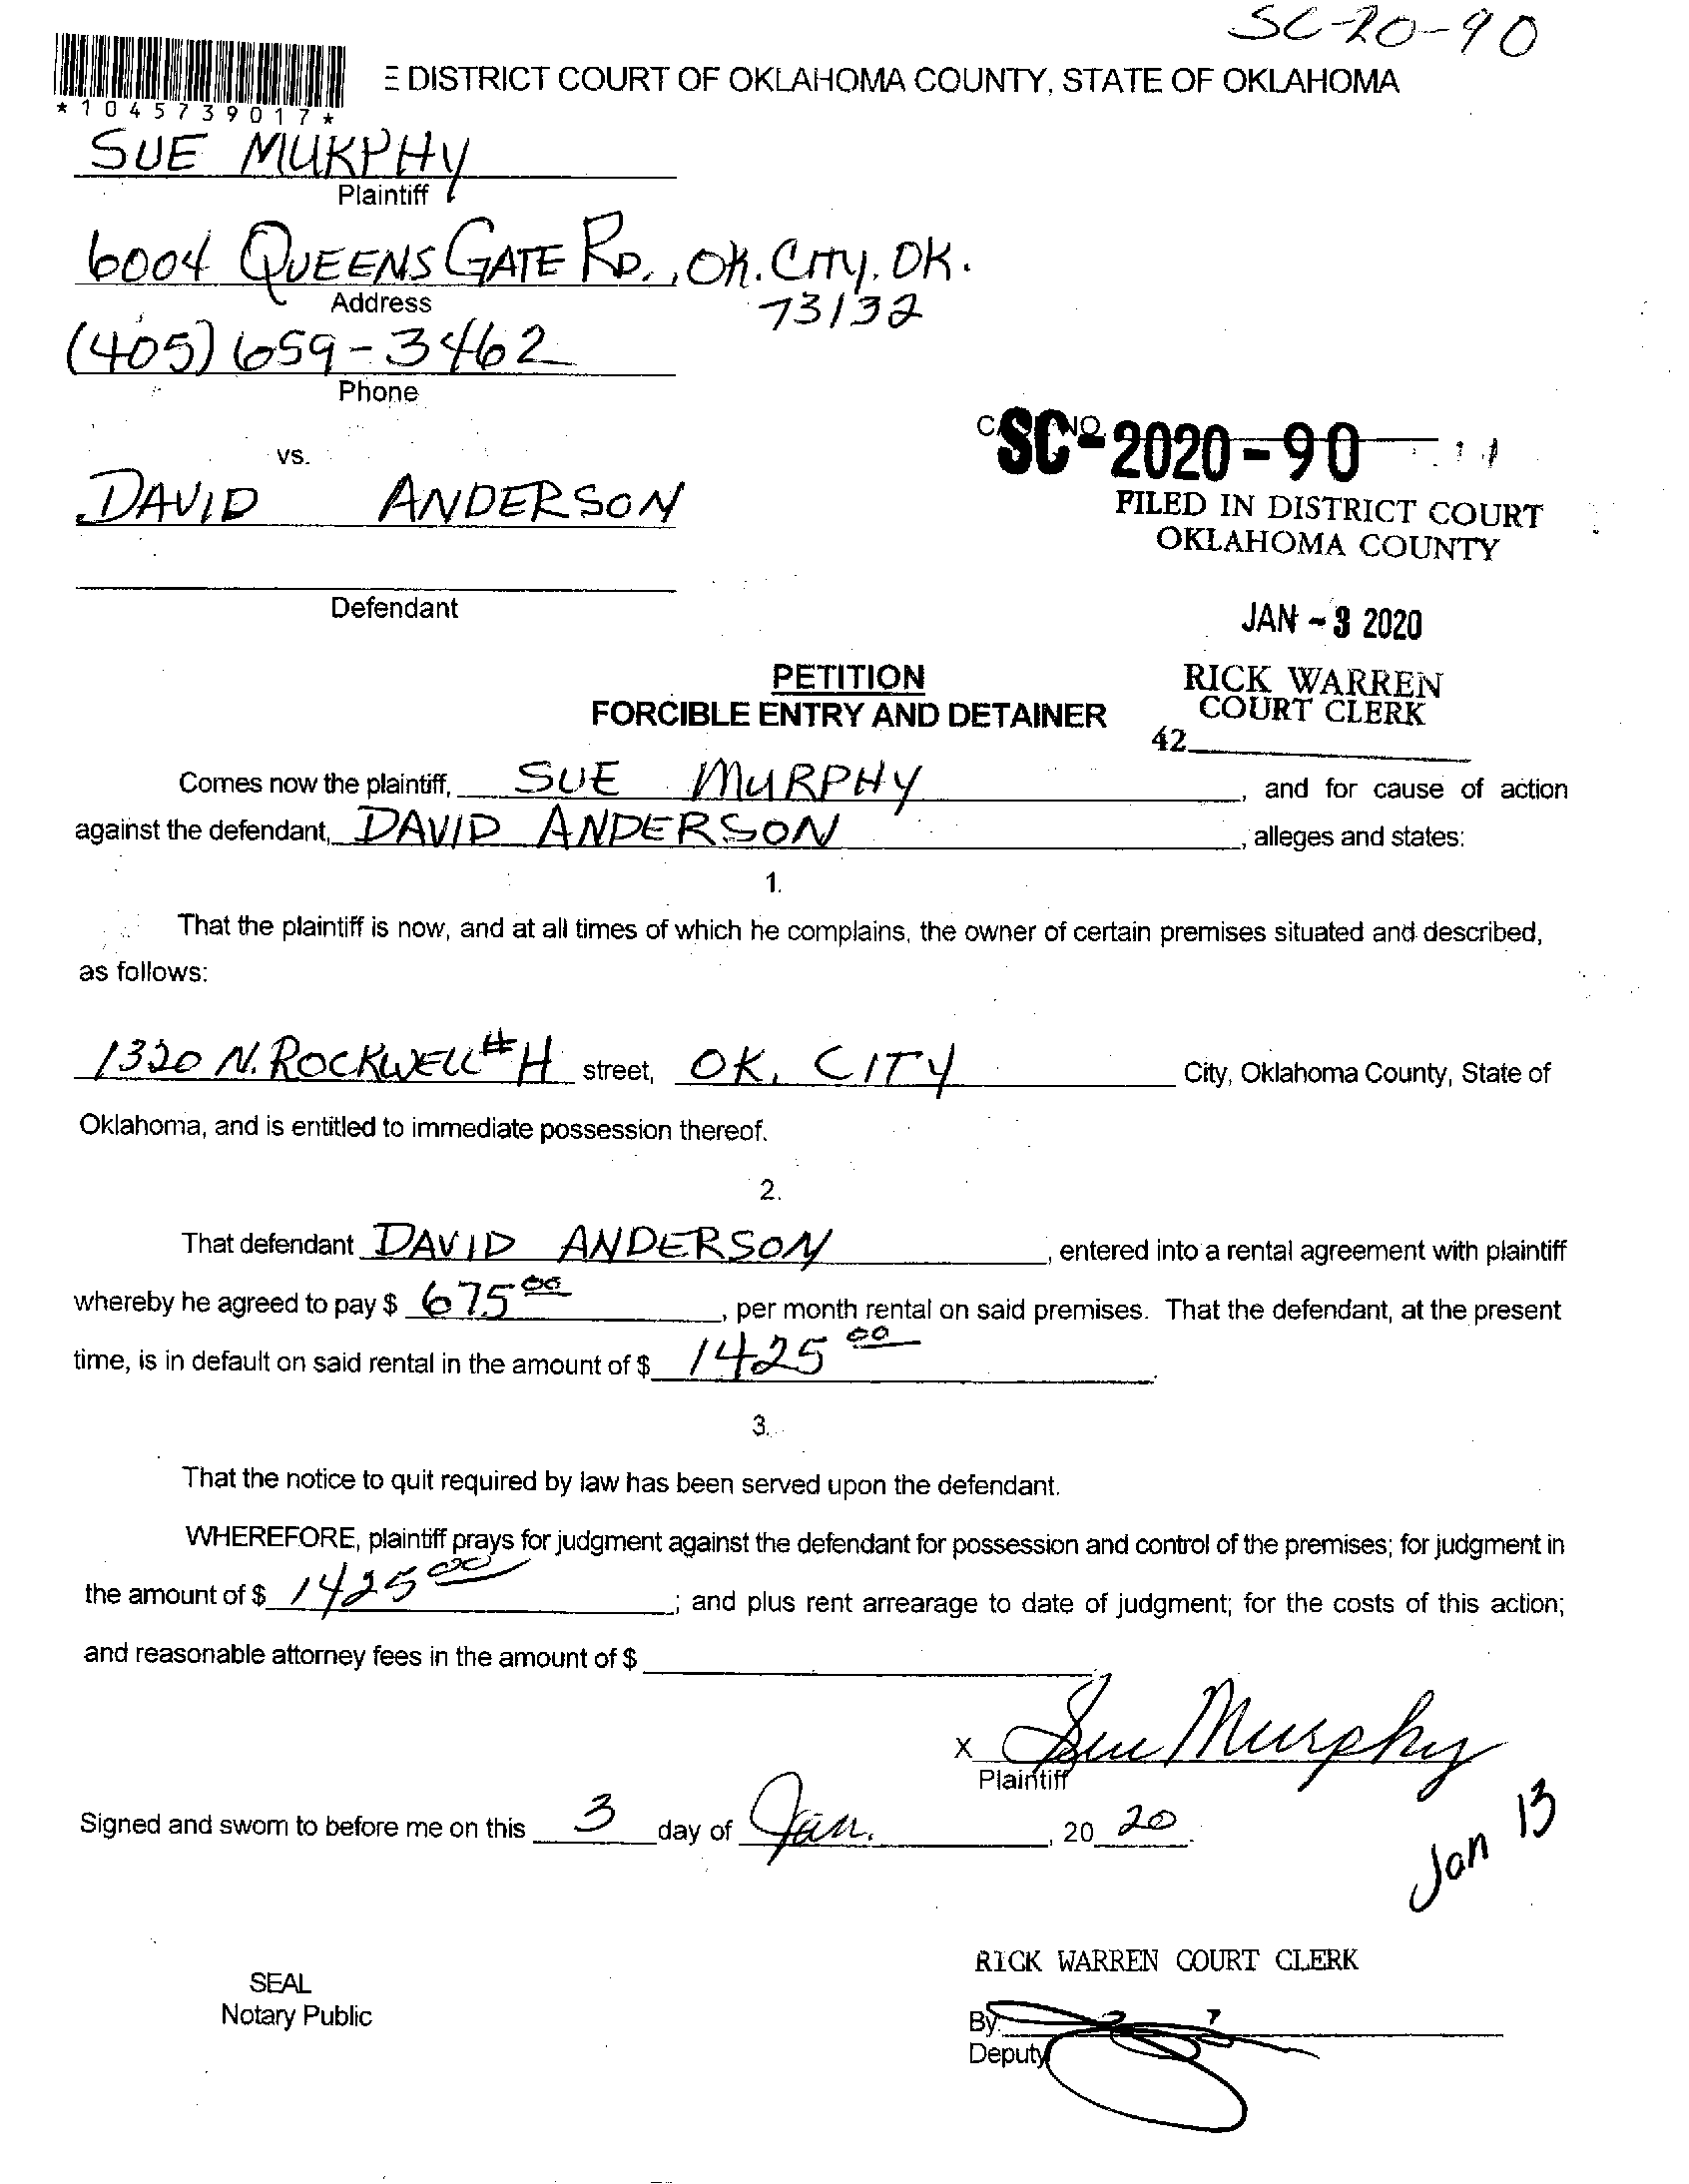 SC-20-90
E DISTRICT COURT OF OKLAHOMA COUNTY, STATE OF OKLAHOMA
*1045739017*
SUE MURPHY
Plaintiff
6004 QUEENS GATE RD., OK. CITY, OK.
73132
Address
(405) 659-3462
Phone
vs.
DAVID ANDERSON
Defendant
SC-2020-90
FILED IN DISTRICT COURT
OKLAHOMA COUNTY
JAN -3 2020
RICK WARREN
COURT CLERK
42
PETITION
FORCIBLE ENTRY AND DETAINER
Comes now the plaintiff, SUE MURPHY, and for cause of action
against the defendant, DAVID ANDERSON, alleges and states:
1.
That the plaintiff is now, and at all times of which he complains, the owner of certain premises situated and described,
as follows:
1320 N. ROCKWELL #H street, OK. CITY City, Oklahoma County, State of
Oklahoma, and is entitled to immediate possession thereof.
2.
That defendant DAVID ANDERSON, entered into a rental agreement with plaintiff
whereby he agreed to pay $ 675 00, per month rental on said premises. That the defendant, at the present
time, is in default on said rental in the amount of $ 1425 00.
3.
That the notice to quit required by law has been served upon the defendant.
WHEREFORE, plaintiff prays for judgment against the defendant for possession and control of the premises; for judgment in
the amount of $ 1425 00; and plus rent arrearage to date of judgment; for the costs of this action;
and reasonable attorney fees in the amount of $
x Sue Murphy
Plaintiff
Signed and sworn to before me on this 3 day of Jan., 20 20.
Jan 13
RICK WARREN COURT CLERK
SEAL
Notary Public
By:
Deputy